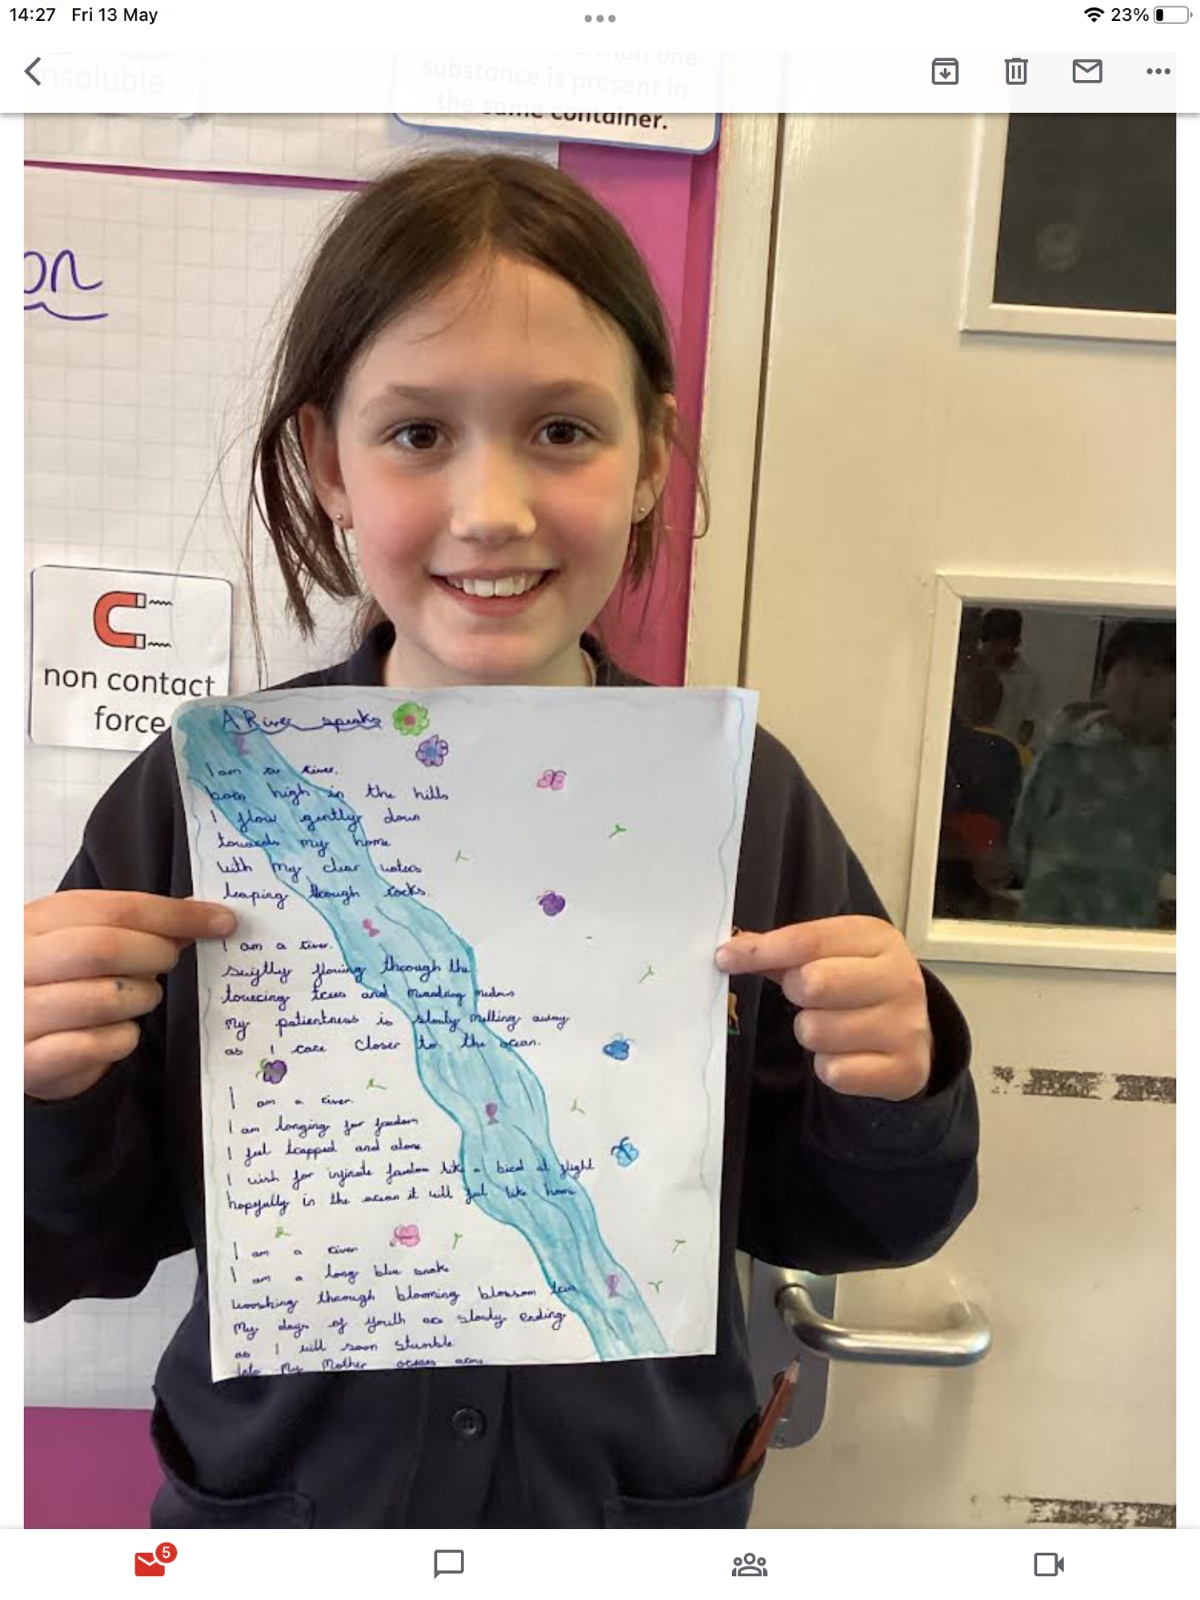 14:27 Fri 13 May
23%
nsoluble
than one
substance is present in
the same container.
on
non contact
force
A River speaks
I am a river.
born high in the hills
I flow gently down
towards my home
with my clear waters
leaping though rocks.
I am a river.
swiftly flowing through the
towering trees and
My patientness is slowly melting away
as I race closer to the ocean.
I am a river.
I am longing for freedom
I feel trapped and alone
I wish for infinate freedom like a bird at flight
hopefully in the ocean it will feel like home
I am a river
I am a long blue snake
wooshing through blooming blossom trees
My days of youth are slowly ending
as I will soon stumble
Into My Mother oceans arms
5